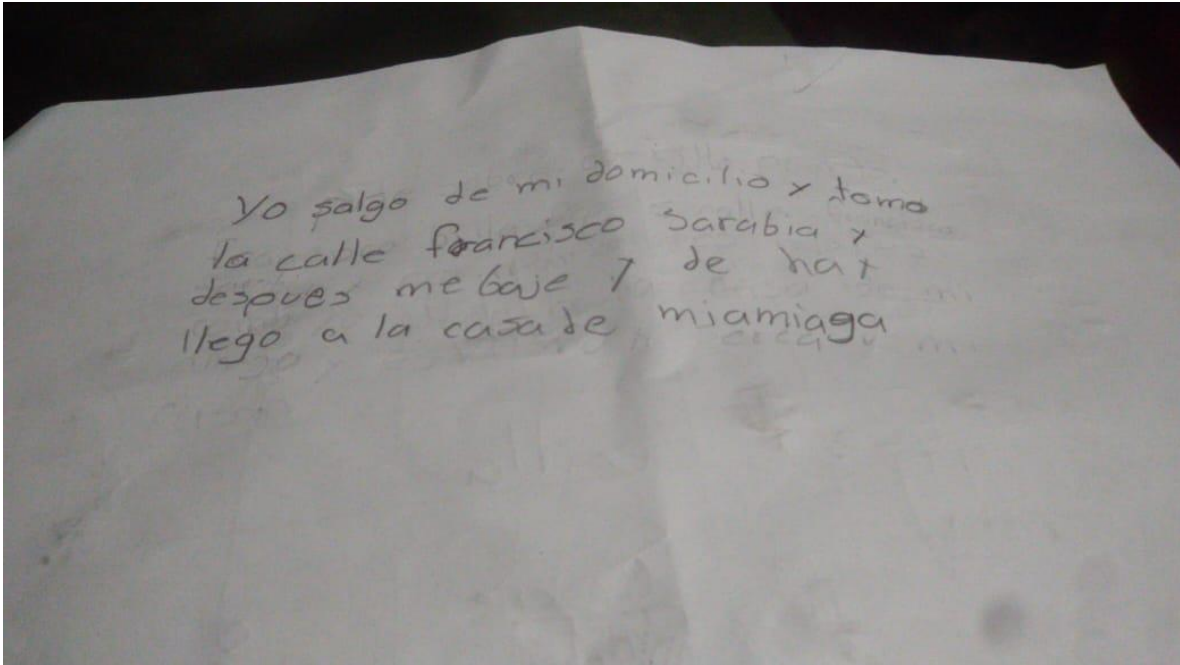 Yo salgo de mi domicilio y tomo
la calle francisco sarabia y
despues me baje y de hay
llego a la casa de miamiaga